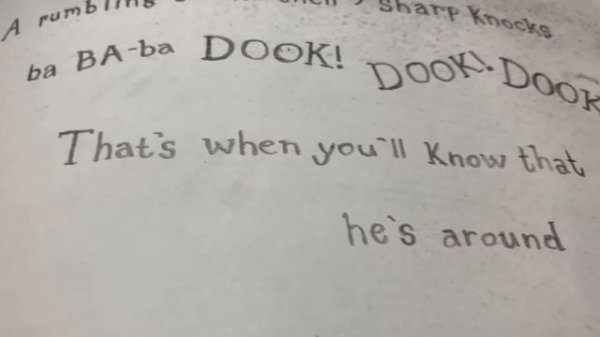 A rumbling sharp Knocks
ba BA-ba DOOK! DOOK! DOOK
That's when you'll Know that
he's around